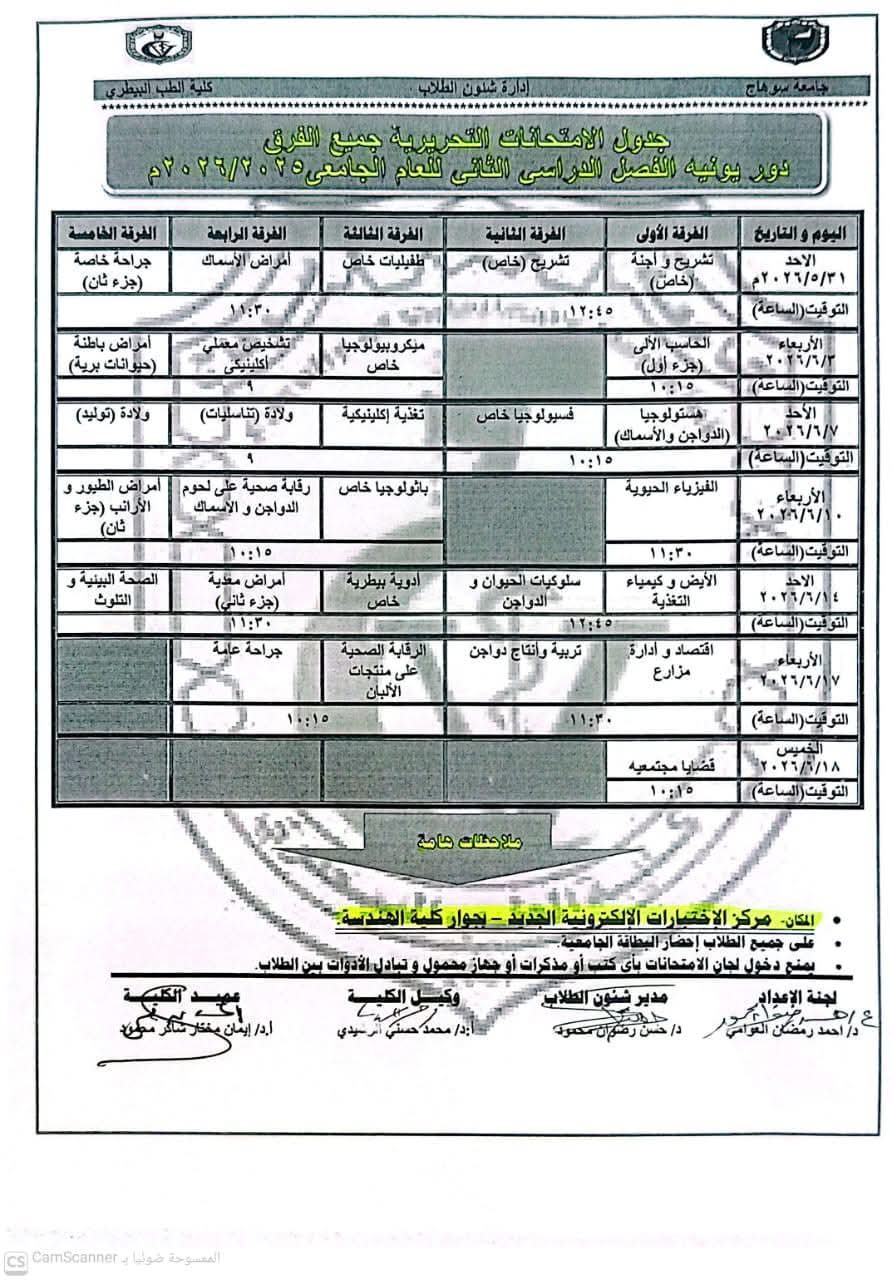 جامعة سوهاج إدارة شئون الطلاب كلية الطب البيطري
جدول الامتحانات التحريرية جميع الفرق
دور يونيه الفصل الدراسى الثانى للعام الجامعى ٢٠٢٦/٢٠٢٥م
اليوم و التاريخ الفرقة الأولى الفرقة الثانية الفرقة الثالثة الفرقة الرابعة الفرقة الخامسة
الاحد تشريح و أجنة تشريح (خاص) طفيليات خاص أمراض الأسماك جراحة خاصة
٢٠٢٦/٥/٣١م (خاص) (جزء ثان)
التوقيت(الساعة) ١٢:٤٥ ١١:٣٠
الأربعاء الحاسب الألى ميكروبيولوجيا تشخيص معملي أمراض باطنة
٢٠٢٦/٦/٣ (جزء أول) خاص أكلينيكى (حيوانات برية)
التوقيت(الساعة) ١٠:١٥ ٩
الأحد هستولوجيا فسيولوجيا خاص تغذية إكلينيكية ولادة (تناسليات) ولادة (توليد)
٢٠٢٦/٦/٧ (الدواجن والأسماك)
التوقيت(الساعة) ١٠:١٥ ٩
الأربعاء الفيزياء الحيوية باثولوجيا خاص رقابة صحية على لحوم أمراض الطيور و
٢٠٢٦/٦/١٠ الدواجن و الأسماك الأرانب (جزء
ثان)
التوقيت(الساعة) ١١:٣٠ ١٠:١٥
الاحد الأيض و كيمياء سلوكيات الحيوان و أدوية بيطرية أمراض معدية الصحة البيئية و
٢٠٢٦/٦/١٤ التغذية الدواجن خاص (جزء ثاني) التلوث
التوقيت(الساعة) ١٢:٤٥ ١١:٣٠
الأربعاء اقتصاد و أدارة تربية وأنتاج دواجن الرقابة الصحية جراحة عامة
٢٠٢٦/٦/١٧ مزارع على منتجات
الألبان
التوقيت(الساعة) ١١:٣٠ ١٠:١٥
الخميس قضايا مجتمعيه
٢٠٢٦/٦/١٨
التوقيت(الساعة) ١٠:١٥
ملاحظات هامة
• المكان- مركز الإختبارات الإلكترونية الجديد – بجوار كلية الهندسة.
• على جميع الطلاب إحضار البطاقة الجامعية.
• يمنع دخول لجان الامتحانات بأى كتب أو مذكرات أو جهاز محمول و تبادل الأدوات بين الطلاب.
لجنة الإعداد مدير شئون الطلاب وكيل الكلية عميد الكلية
د/ احمد رمضان العوامي د/ حسن رضوان محمود أ.د/ محمد حسني الرشيدي أ.د/ إيمان مختار شاكر محمود
CS CamScanner الممسوحة ضوئيا بـ